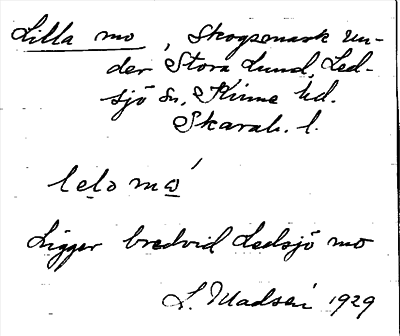 Lilla mo, Skogsmark un-
der Stora Lund, Led-
sjö sn, Kinne hd.
Skarab. l.
lelo mó
Ligger bredvid Ledsjö mo
L. Madsén 1929